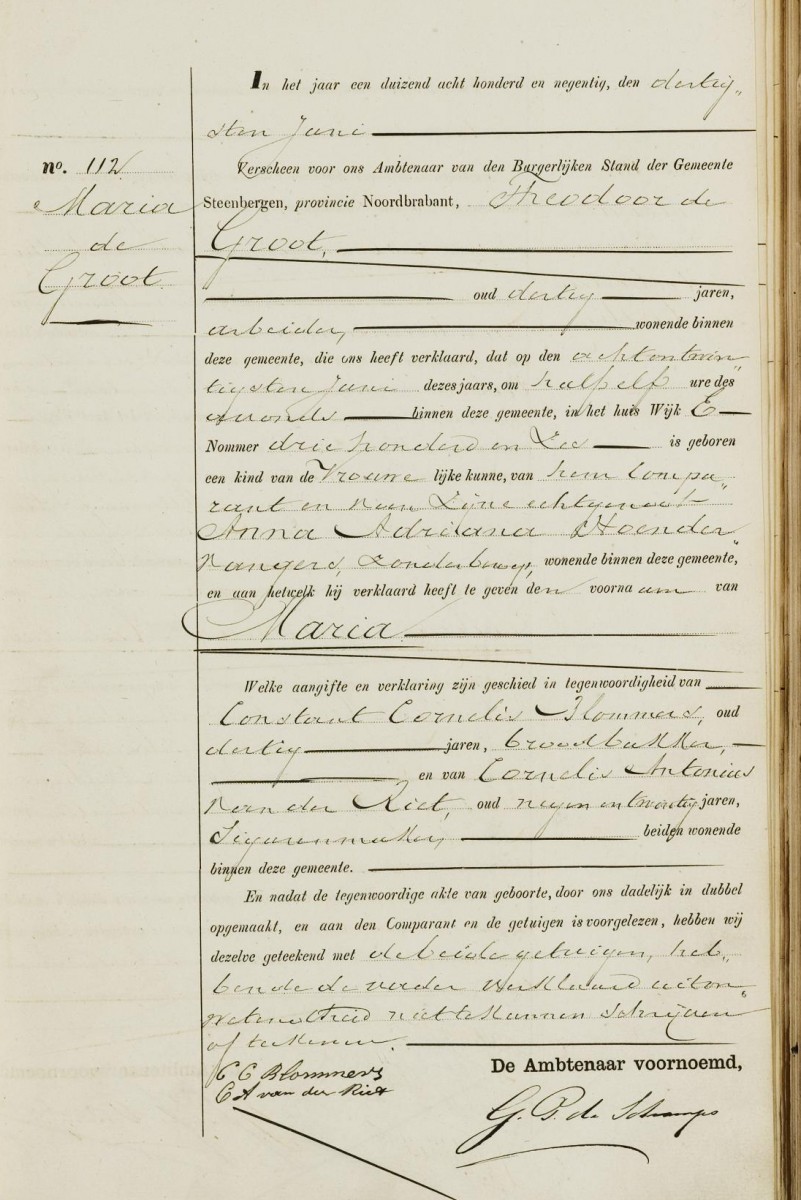 In het jaar een duizend acht honderd en negentig, den dertig„
sten Juni
no. 112
Maria
de
Groot
Verscheen voor ons Ambtenaar van den Burgerlijken Stand der Gemeente
Steenbergen, provincie Noordbrabant, Theodoor de
Groot,
oud dertig jaren,
arbeider, wonende binnen
deze gemeente, die ons heeft verklaard, dat op den achtentwin„
tigsten Juni dezes jaars, om half elf ure des
avonds binnen deze gemeente, in het huis Wijk E
Nommer drie honderd en zes is geboren
een kind van de Vrouwe lijke kunne, van hem Compa„
rant en van zijne echtgenoot
Anna Adriana Hoender„
vangers, zonder beroep, wonende binnen deze gemeente,
en aan hetwelk hij verklaard heeft te geven den voornaam van
Maria
Welke aangifte en verklaring zijn geschied in tegenwoordigheid van
Constant Cornelis Blommers, oud
dertig jaren, broodbakker,
en van Cornelis Antonius
van der Riet, oud negen en twintig jaren,
Sigarenmaker, beiden wonende
binnen deze gemeente.
En nadat de tegenwoordige akte van geboorte, door ons dadelijk in dubbel
opgemaakt, en aan den Comparant en de getuigen is voorgelezen, hebben wij
dezelve geteekend met de beide getuigen, heb„
bende de vader verklaard uit on„
wetendheid niet te kunnen schrijven
of teekenen.
C C Blommers
C A van der Riet
De Ambtenaar voornoemd,
G. B. de